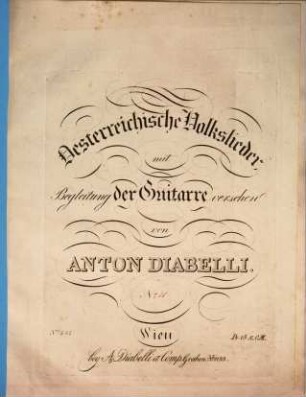 Oesterreichische Volkslieder,
mit
Begleitung der Guitarre versehen
von
ANTON DIABELLI.
Wien
bey A. Diabelli et Comp. Graben